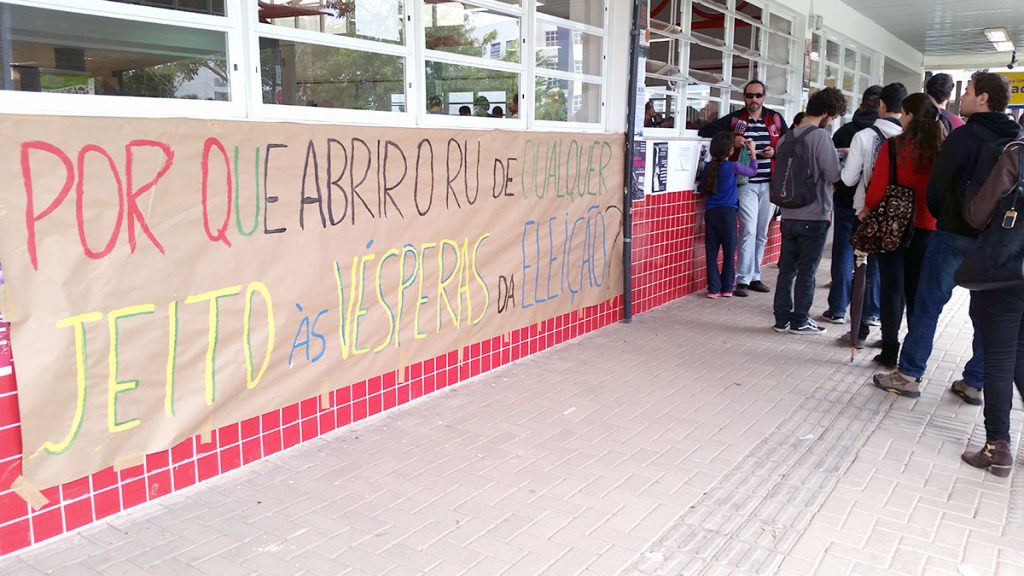 POR QUE ABRIR O RU DE QUALQUER
JEITO ÀS VÉSPERAS DA ELEIÇÃO?